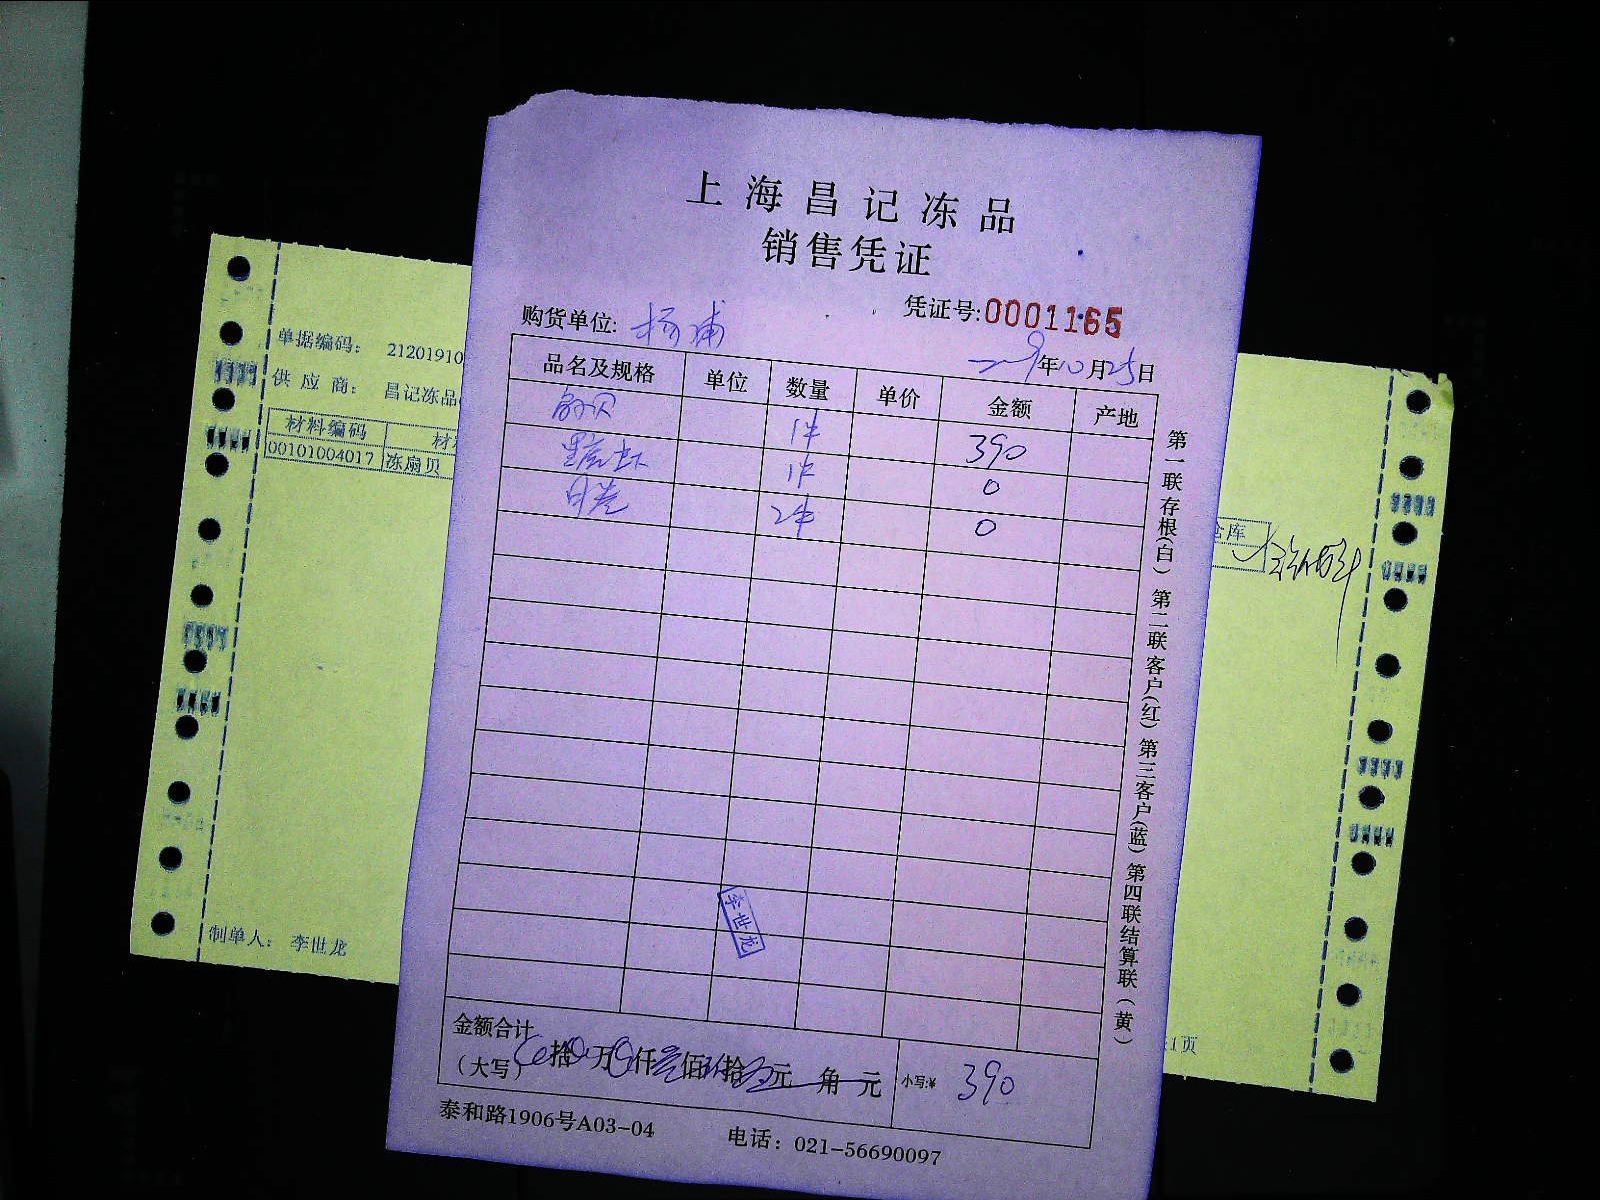 上海昌记冻品
销售凭证
凭证号:0001165
购货单位: 杨浦
二〇一9年10月25日
品名及规格 单位 数量 单价 金额 产地
扇贝 1件 390
黑虎虾 1件 0
2件 0
李世龙
金额合计
(大写) 拾 万 仟 叁佰 玖拾 元 角 元 小写:¥ 390
泰和路1906号A03-04 电话：021-56690097
第一联存根(白) 第二联客户(红) 第三客户(蓝) 第四联结算联(黄)
单据编码： 21201910
供应商： 昌记冻品
材料编码
00101004017 冻扇贝
制单人： 李世龙
仓库
1页